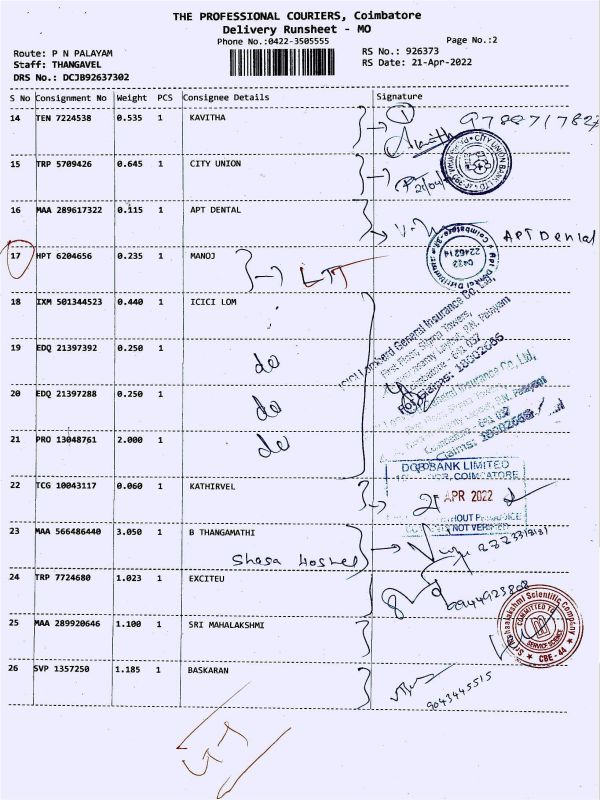 THE PROFESSIONAL COURIERS, Coimbatore
Delivery Runsheet - MO
Phone No.:0422-3505555
Page No.:2
Route: P N PALAYAM
RS No.: 926373
Staff: THANGAVEL
RS Date: 21-Apr-2022
DRS No.: DCJB92637302
S No Consignment No Weight PCS Consignee Details Signature
14 TEN 7224538 0.535 1 KAVITHA
1
15 TRP 5709426 0.645 1 CITY UNION
CITY UNION BANK
16 MAA 289617322 0.115 1 APT DENTAL
APT Dental
0422
2246214
17 HPT 6204656 0.235 1 MANOJ
18 IXM 501344523 0.440 1 ICICI LOM
ICICI Lombard General Insurance Co. Ltd,
First Floor, Stana Towers,
Coimbatore - 641 037
19 EDQ 21397392 0.250 1
do
20 EDQ 21397288 0.250 1
do
General Insurance Co. Ltd,
21 PRO 13048761 2.000 1
do
BANK LIMITED
COIMBATORE
22 TCG 10043117 0.060 1 KATHIRVEL
21 APR 2022
NOT VERIFIED
23 MAA 566486440 3.050 1 B THANGAMATHI
24 TRP 7724680 1.023 1 EXCITEU
25 MAA 289920646 1.100 1 SRI MAHALAKSHMI
Scientific Company
COMMITTED TO
SERVICE SCIENCE
CBE - 44
26 SVP 1357250 1.185 1 BASKARAN
9043445515